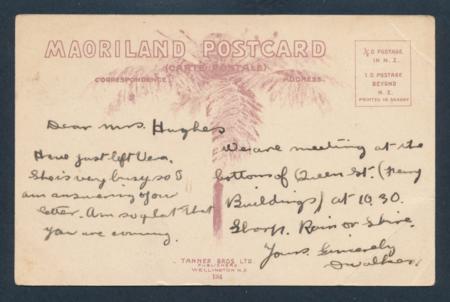 MAORILAND POSTCARD
(CARTE POSTALE)
CORRESPONDENCE ADDRESS.
½ D POSTAGE
IN N.Z.
1 D POSTAGE
BEYOND
N.Z.
PRINTED IN SAXONY
Dear Mrs. Hughes
Have just left Vera.
She is very busy so I
am answering your
letter. Am so glad that
you are coming.
We are meeting at the
bottom of Queen St. (Ferry
Buildings) at 10.30.
Sharp. Rain or Shine.
Yours Sincerely
TANNER BROS LTD
PUBLISHERS
WELLINGTON N.Z.
184